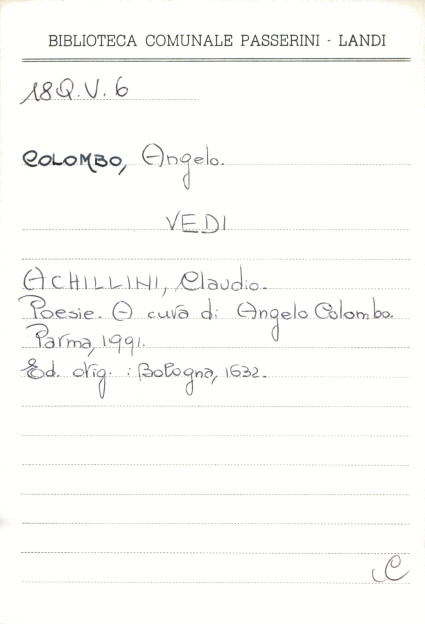 BIBLIOTECA COMUNALE PASSERINI - LANDI
18Q.V.6
COLOMBO, Angelo.
VEDI
ACHILLINI, Claudio.
Poesie. A cura di Angelo Colombo.
Parma, 1991.
Ed. orig. : Bologna, 1632.
C